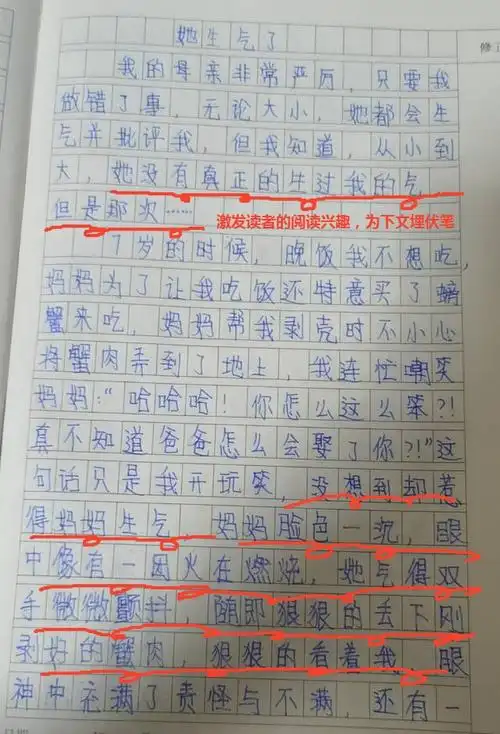 她生气了
我的母亲非常严厉，只要我
做错了事，无论大小，她都会生
气并批评我，但我知道，从小到
大，她没有真正的生过我的气
但是那次……
激发读者的阅读兴趣，为下文埋伏笔
7岁的时候，晚饭我不想吃，
妈妈为了让我吃饭还特意买了螃
蟹来吃，妈妈帮我剥壳时不小心
将蟹肉弄到了地上，我连忙嘲笑
妈妈：“哈哈哈！你怎么这么笨?!
真不知道爸爸怎么会娶了你?!”这
句话只是我开玩笑，没想到却惹
得妈妈生气，妈妈脸色一沉，眼
中像有一团火在燃烧，她气得双
手微微颤抖，随即狠狠的丢下刚
剥好的蟹肉，狠狠的看着我，眼
神中充满了责怪与不满，还有一